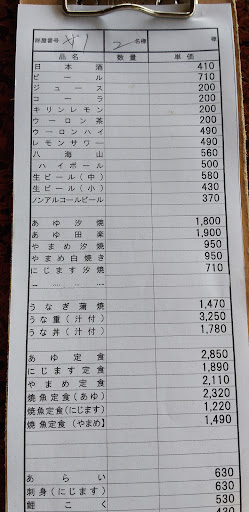 部屋番号 2名様 様
品名 数量 単価
日本酒 410
ビール 710
ジュース 200
コーラ 200
キリンレモン 200
ウーロン茶 200
ウーロンハイ 490
レモンサワー 490
八海山 560
ハイボール 500
生ビール(中) 580
生ビール(小) 430
ノンアルコールビール 370
あゆ汐焼 1,800
あゆ田楽 1,900
やまめ汐焼 950
やまめ白焼き 950
にじます汐焼 710
うなぎ蒲焼 1,470
うな重(汁付) 3,250
うな丼(汁付) 1,780
あゆ定食 2,850
にじます定食 1,890
やまめ定食 2,110
焼魚定食(あゆ) 2,320
焼魚定食(にじます) 1,220
焼魚定食(やまめ) 1,490
あらい 630
刺身(にじます) 630
鯉こく 530
430